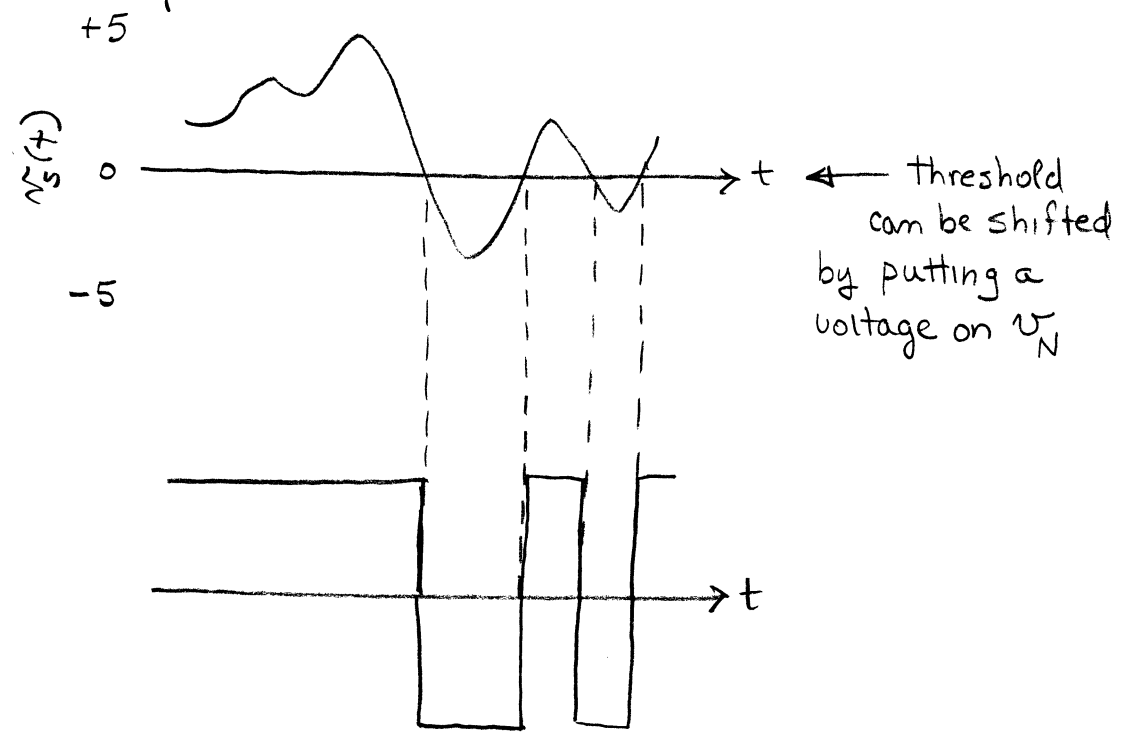 +5
v_s(t)
0
t
Threshold
can be shifted
by putting a
voltage on v_N
-5
t